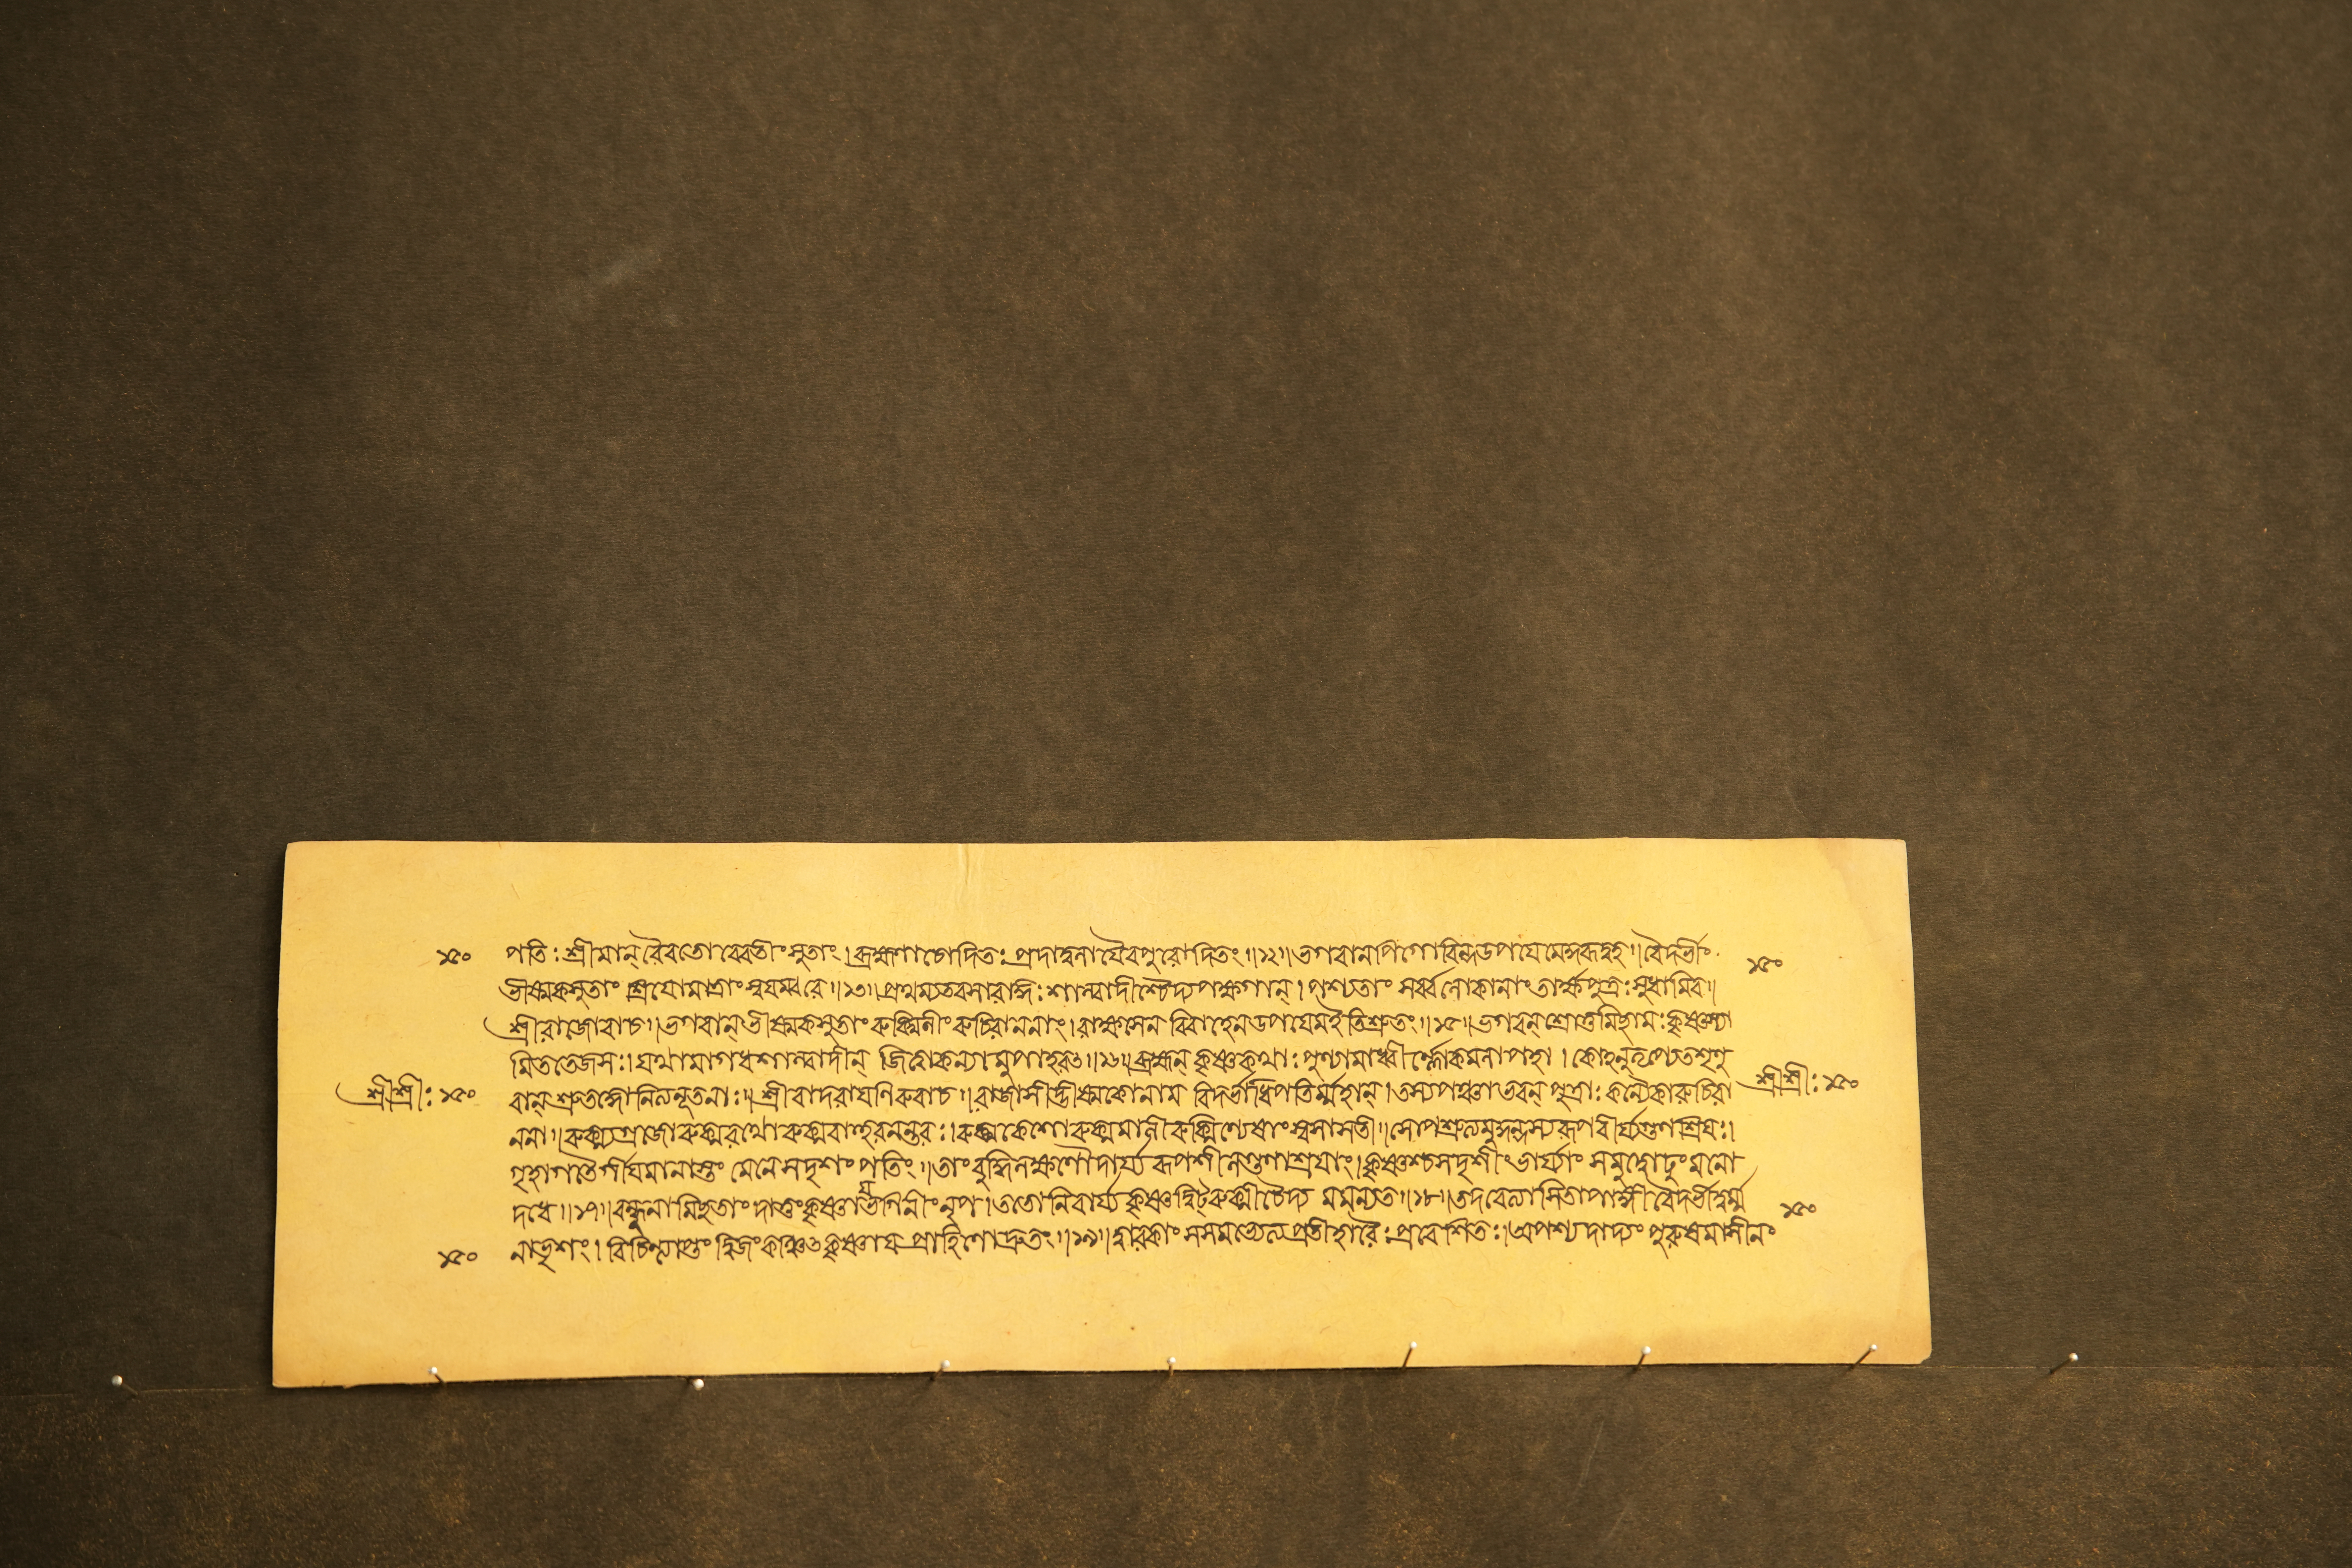 ১৫০ পতিঃ শ্রীমান্ রৈবতো রেবতীং সুতাং। ব্রহ্মণা চোদিতঃ প্রাদাদ্বলাযৈব পুরোদিতং॥১২॥ ভগবানপি গোবিন্দ উপযেমে কুরূদ্বহ॥ বৈদর্ভীং ১৫০
ভীষ্মকসুতাং শ্রিযো মাত্রাং স্বযম্বরে॥১৩॥ প্রমথ্য তরসা রাজ্ঞঃ শাল্বাদীংশ্চৈদ্যপক্ষগান্। পশ্যতাং সর্ব্বলোকানাং তার্ক্ষপুত্রঃ সুধামিব॥
শ্রীরাজোবাচ॥ ভগবান্ ভীষ্মকসুতাং রুক্মিনীং রুচিরাননাং। রাক্ষসেন বিবাহেন উপযেম ইতি শ্রুতং॥১৫॥ ভগবন্ শ্রোতুমিছামঃ কৃষ্ণস্যা
মিততেজসঃ। যথা মাগধশাল্বাদীন্ জিত্বা কন্যামুপাহরৎ॥১৬॥ ব্রহ্মন্ কৃষ্ণকথাঃ পুণ্যা মাধ্বীর্ল্লোকমলাপহা। কোনুতৃপ্যেত শৃণ্ব
শ্রীশ্রীঃ ১৫০ বান্ শ্রুতজ্ঞো নিত্যনূতনাঃ॥ শ্রীবাদরাযণিরুবাচ॥ রাজাসীদ্ভীষ্মকো নাম বিদর্ভাধিপতির্ম্মহান্। তস্য পঞ্চাভবন্ পুত্রাঃ কন্যৈকা রুচিরা শ্রীশ্রীঃ ১৫০
ননা॥ রুক্ম্যগ্রজো রুক্মরথো রুক্মবাহুরনন্তরঃ। রুক্মকেশো রুক্মমালী রুক্মিণ্যেষাং স্বসা সতী॥ সোপশ্রুত্য মুকুন্দস্য রূপবীর্য্যগুণশ্রিযঃ।
গৃহাগতৈর্গীযমানাস্তং মেনে সদৃশং পতিং॥ তাং বুদ্ধিলক্ষণৌদার্য্যরূপশীলগুণাশ্রযাং। কৃষ্ণশ্চ সদৃশীং ভার্য্যাং সমুদ্বোঢুং মনো
দধে॥১৭॥ বন্ধূনামিছতাং দাতুং কৃষ্ণায ভগিনীং নৃপ। ততো নিবার্য্য কৃষ্ণদ্বিট্ রুক্মী চৈদ্যমমন্যত॥১৮॥ তদবেত্যাসিতাপাঙ্গী বৈদর্ভী দুর্ম্ম ১৫০
১৫০ নাভৃশং। বিচিন্ত্যাপ্তং দ্বিজং কঞ্চিৎ কৃষ্ণায প্রাহিণোদ্দ্রুতং॥১৯॥ দ্বারকাং সসমভ্যেত্য প্রতীহারৈঃ প্রবেশিতঃ। অপশ্যদাদ্যং পুরুষমাসীনং